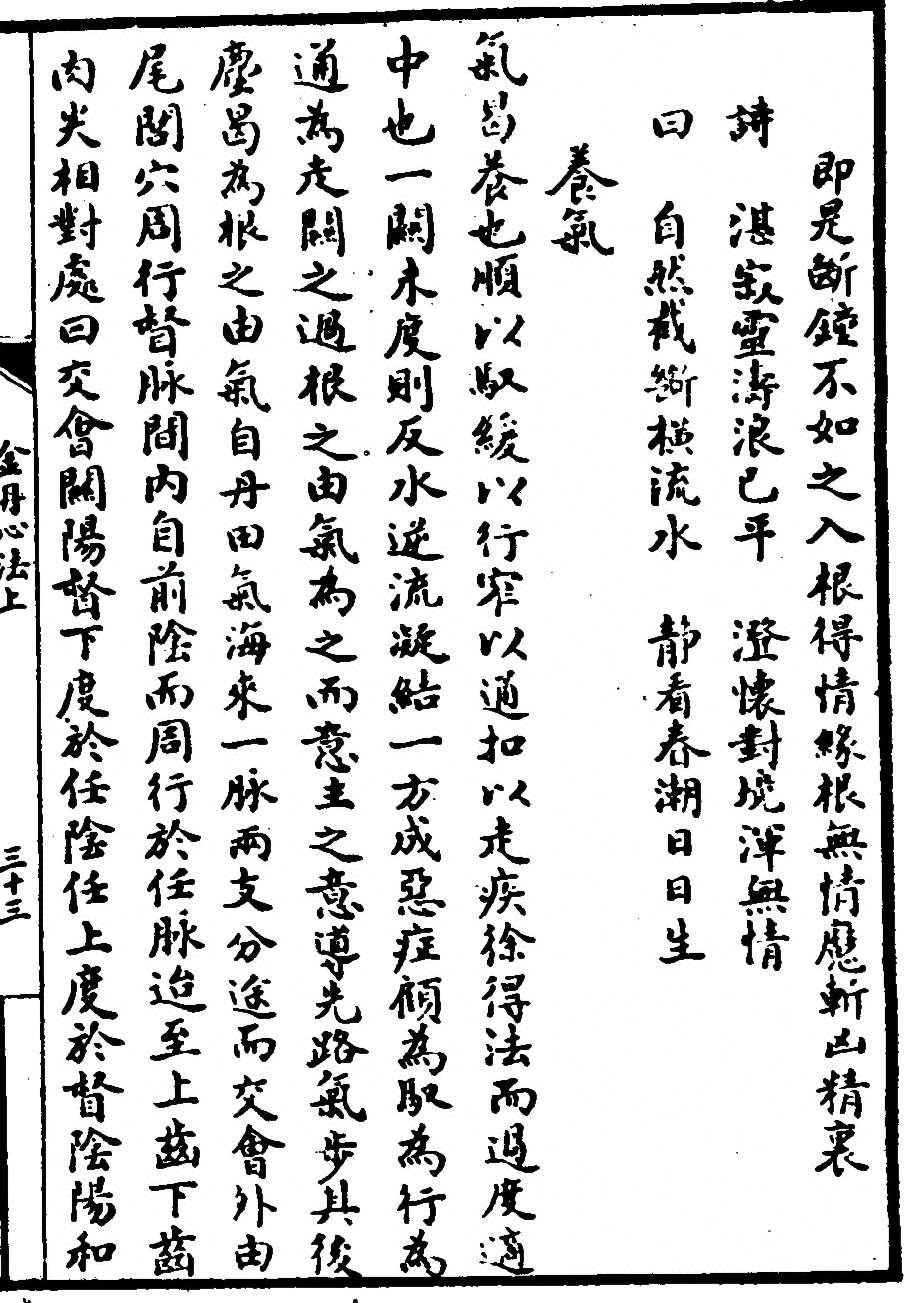 即是斷鐘不如之入根得情緣根無情應斬凶精裏
詩　湛寂靈濤浪已平　澄懷對境渾無情
曰　自然截斷橫流水　靜看春潮日日生
養氣
氣曷養也順以馭緩以行窄以通扣以走疾徐得法而過度適
中也一關未度則反水逆流凝結一方成惡症顧為馭為行為
通為走關之過根之由氣為之而意主之意導先路氣步其後
塵曷為根之由氣自丹田氣海來一脉兩支分途而交會外由
尾閭穴周行督脉間內自前陰而周行於任脉迨至上齒下齒
肉尖相對處曰交會關陽督下度於任陰任上度於督陰陽和
金丹心法上
三十三